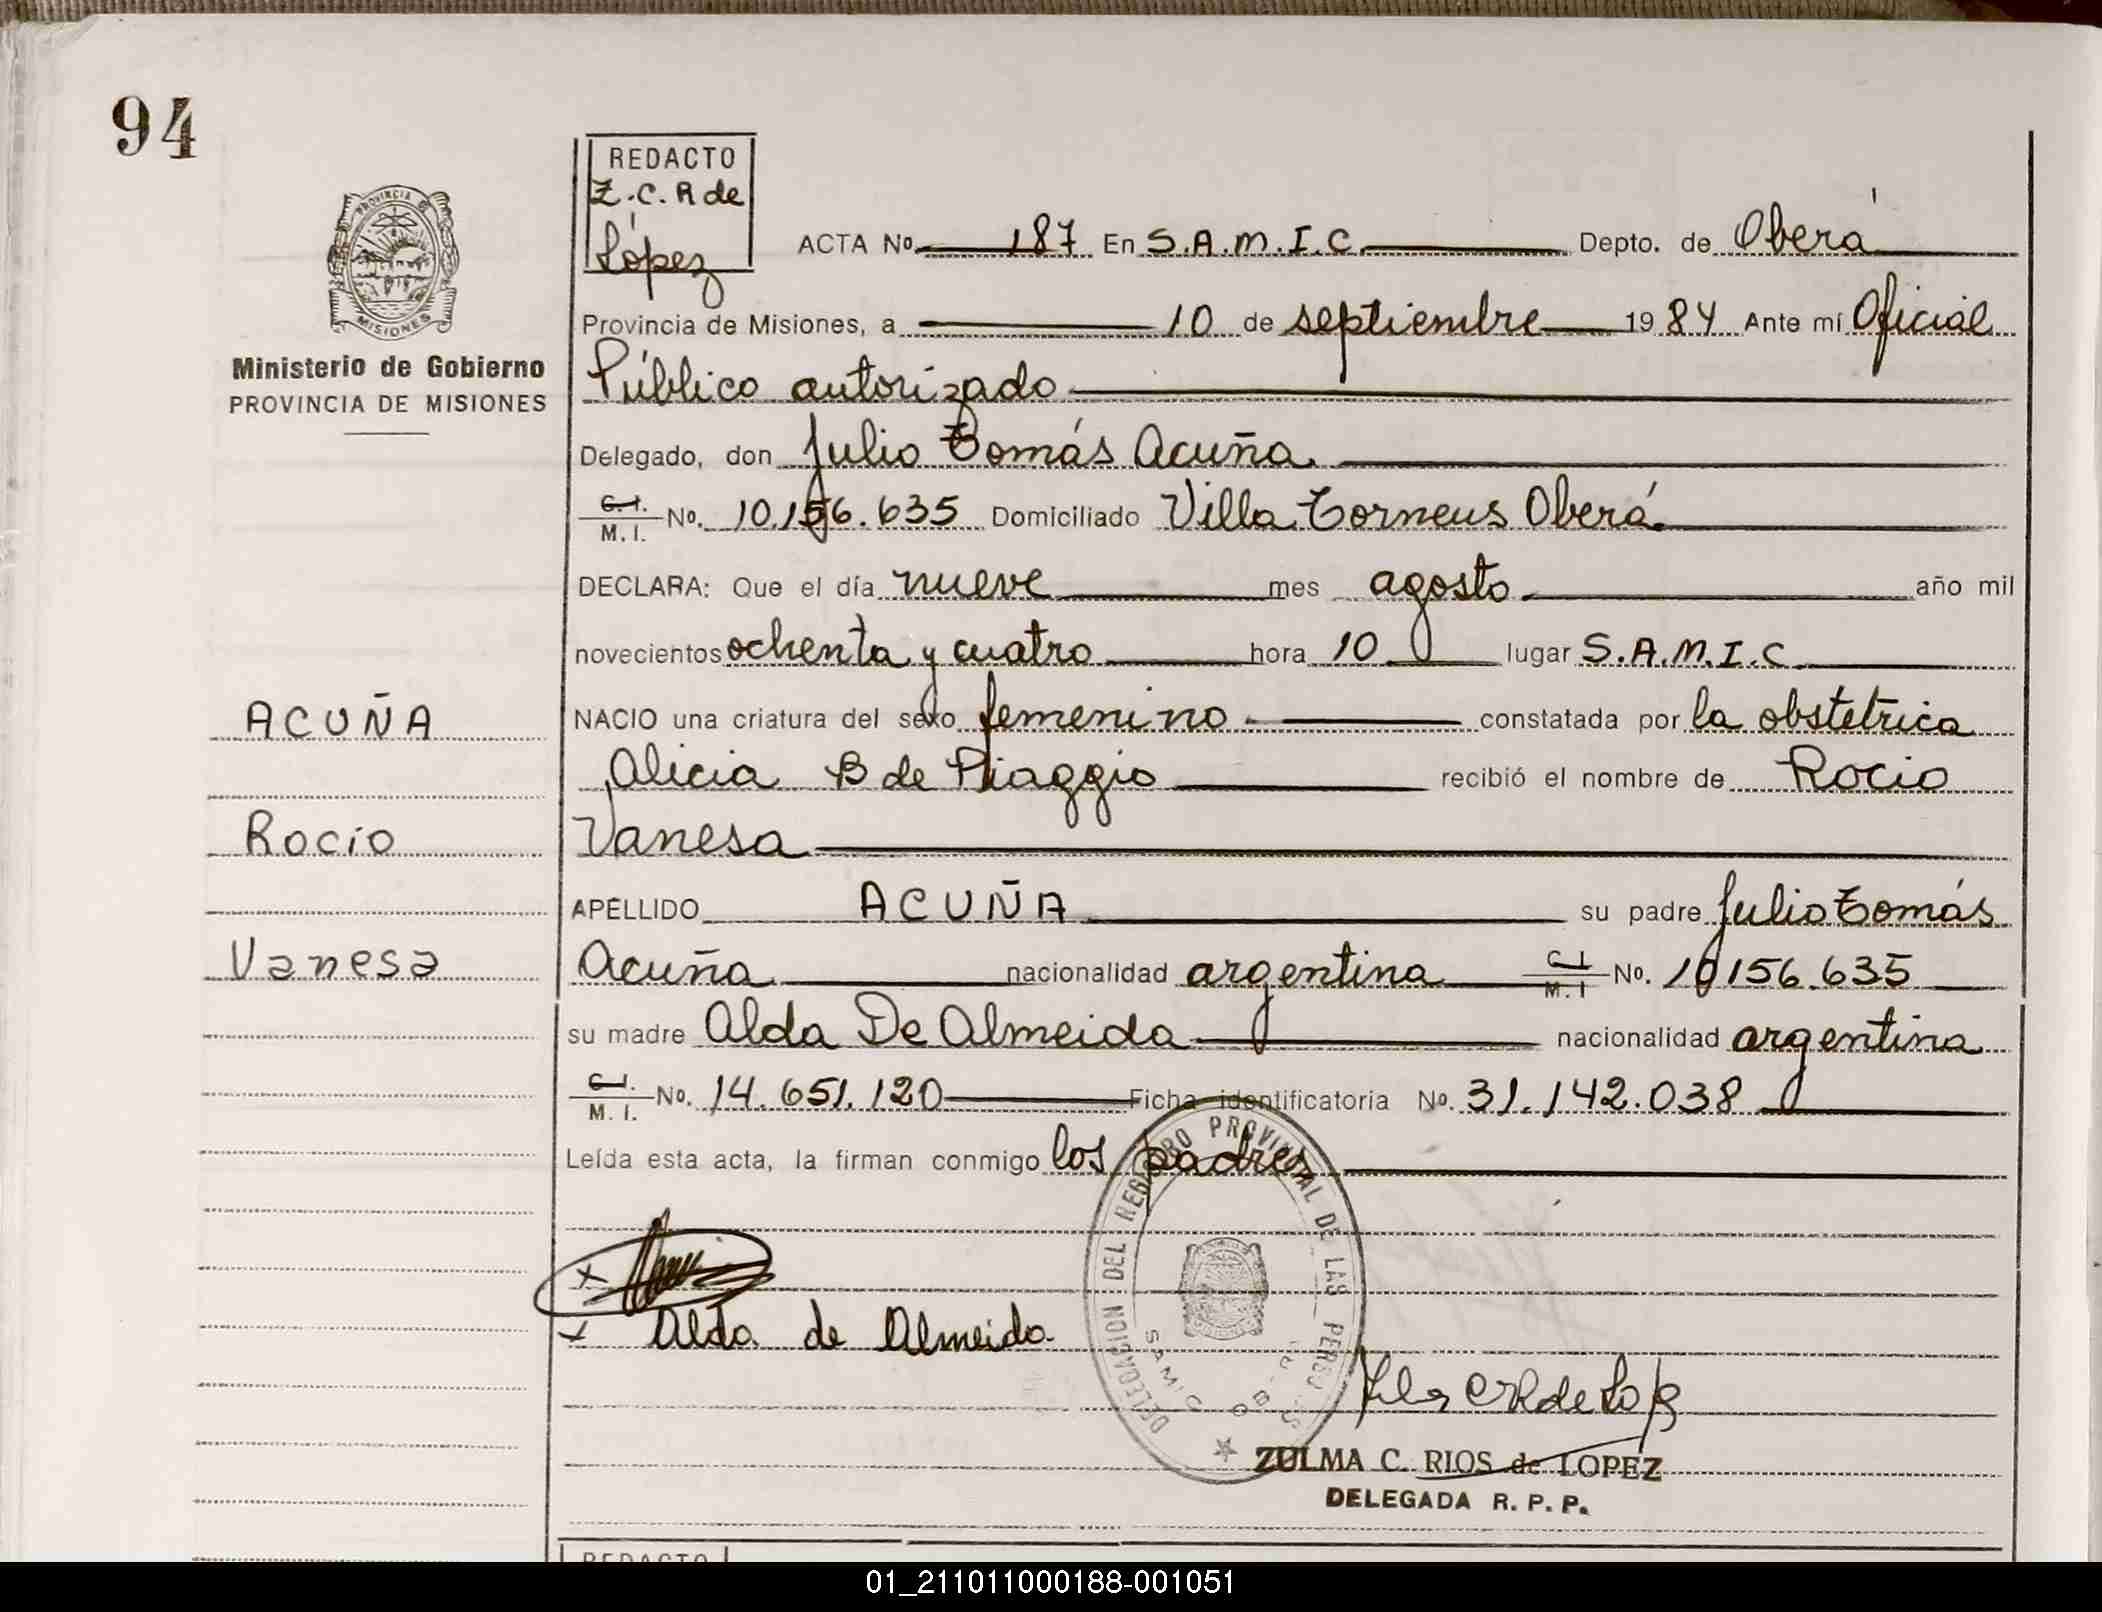 94
REDACTO
Z.C.R de
López
PROVINCIA DE
MISIONES
Ministerio de Gobierno
PROVINCIA DE MISIONES
ACTA No. 187 En S.A.M.I.C. Depto. de Oberá
Provincia de Misiones, a 10 de septiembre 1984 Ante mí Oficial
Público autorizado
Delegado, don Julio Tomás Acuña
C.I. / M.I. No. 10.156.635 Domiciliado Villa Torneus Oberá
DECLARA: Que el día nueve mes agosto año mil
novecientos ochenta y cuatro hora 10 lugar S.A.M.I.C
ACUÑA
NACIO una criatura del sexo femenino constatada por la obstetrica
Alicia B de Piaggio recibió el nombre de Rocio
Rocío
Vanesa
APELLIDO ACUÑA su padre Julio Tomás
Vanesa
Acuña nacionalidad argentina C.I / M.I No. 10 156.635
su madre Alda De Almeida nacionalidad argentina
C.I. / M.I. No. 14.651.120 Ficha identificatoria No. 31.142.038
Leída esta acta, la firman conmigo los padres
DELEGACION DEL REGISTRO PROVINCIAL DE LAS PERSONAS
SAMIC OBERA
x
x Alda de Almeida
ZULMA C. RIOS de LOPEZ
DELEGADA R. P. P.
REDACTO
01_211011000188-001051